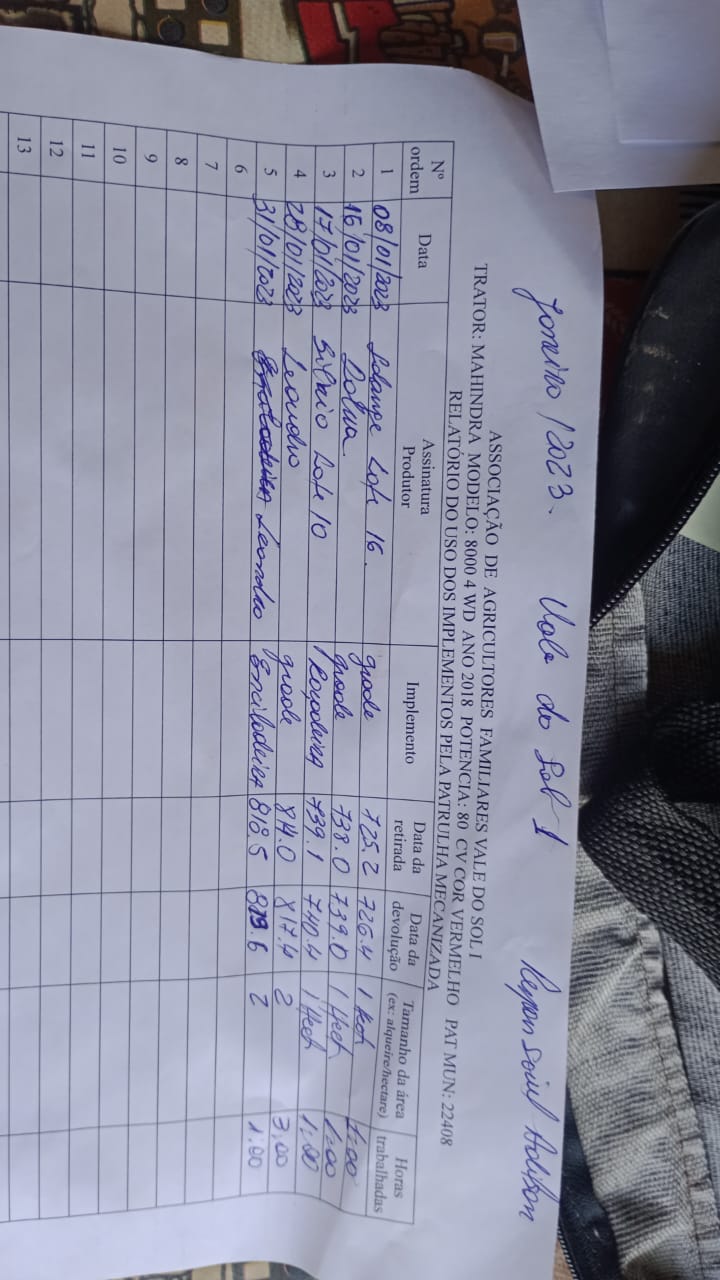 Janeiro / 2023. Vale do Sol - I
ASSOCIAÇÃO DE AGRICULTORES FAMILIARES VALE DO SOL I
TRATOR: MAHINDRA MODELO: 8000 4 WD ANO 2018 POTENCIA: 80 CV COR VERMELHO PAT MUN: 22408
RELATÓRIO DO USO DOS IMPLEMENTOS PELA PATRULHA MECANIZADA
Nº ordem Data Assinatura Produtor Implemento Data da retirada Data da devolução Tamanho da área (ex: alqueire/hectare) Horas trabalhadas
1 08/01/2023 Solange Lote 16. grade 725.2 726.4 1 1:00
2 16/01/2023 grade 738.0 739.0 1 Hect 1:00
3 17/01/2023 Silvio Lote 10 Roçadeira 739.1 740.4 1 Hect 1:00
4 28/01/2023 Leandro grade 814.0 817.4 2 3,00
5 31/01/2023 Leandro Enciladeira 818.5 2 1:00
6
7
8
9
10
11
12
13